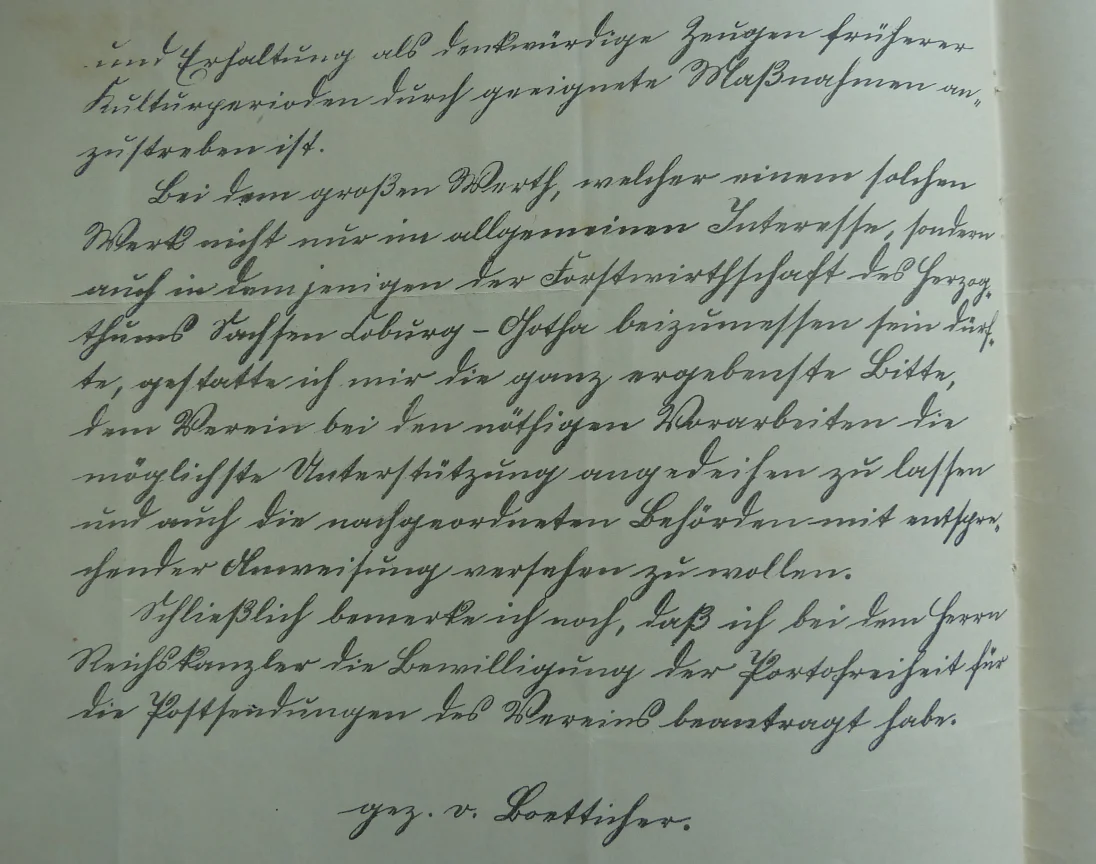 und Erhaltung als denkwürdige Zeugen früherer
Kulturperioden durch geeignete Maßnahmen an-
zustreben ist.
Bei dem großen Werth, welcher einem solchen
Werk nicht nur im allgemeinen Interesse, sondern
auch in demjenigen der Forstwirthschaft des Herzog-
thums Sachsen Coburg - Gotha beizumessen sein dürf-
te, gestatte ich mir die ganz ergebenste Bitte,
dem Verein bei den nöthigen Vorarbeiten die
möglichste Unterstützung angedeihen zu lassen
und auch die nachgeordneten Behörden mit entspre-
chender Anweisung versehen zu wollen.
Schließlich bemerke ich noch, daß ich bei dem Herrn
Reichskanzler die Bewilligung der Portofreiheit für
die Postsendungen des Vereins beantragt habe.
gez. v. Boetticher.